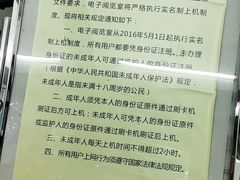 文件要求，电子阅览室将严格执行实名制上机制
度，现将相关规定通知如下：
一、电子阅览室从2016年5月1日起执行实名制上
机制度，所有用户都要凭身份证注册，未办理
身份证的未成年人可通过监护人的身份证注册
（根据《中华人民共和国未成年人保护法》规定，
未成年人是指未满十八周岁的公民）
二、成年人须凭本人的身份证原件通过刷卡机
刷证后方可上机；未成年人可凭本人的身份证
或监护人的身份证原件通过刷卡机刷证后上机。
三、未成年人每天上机时间不得超过2小时。
四、所有用户上网行为须遵守国家法律法规规定。